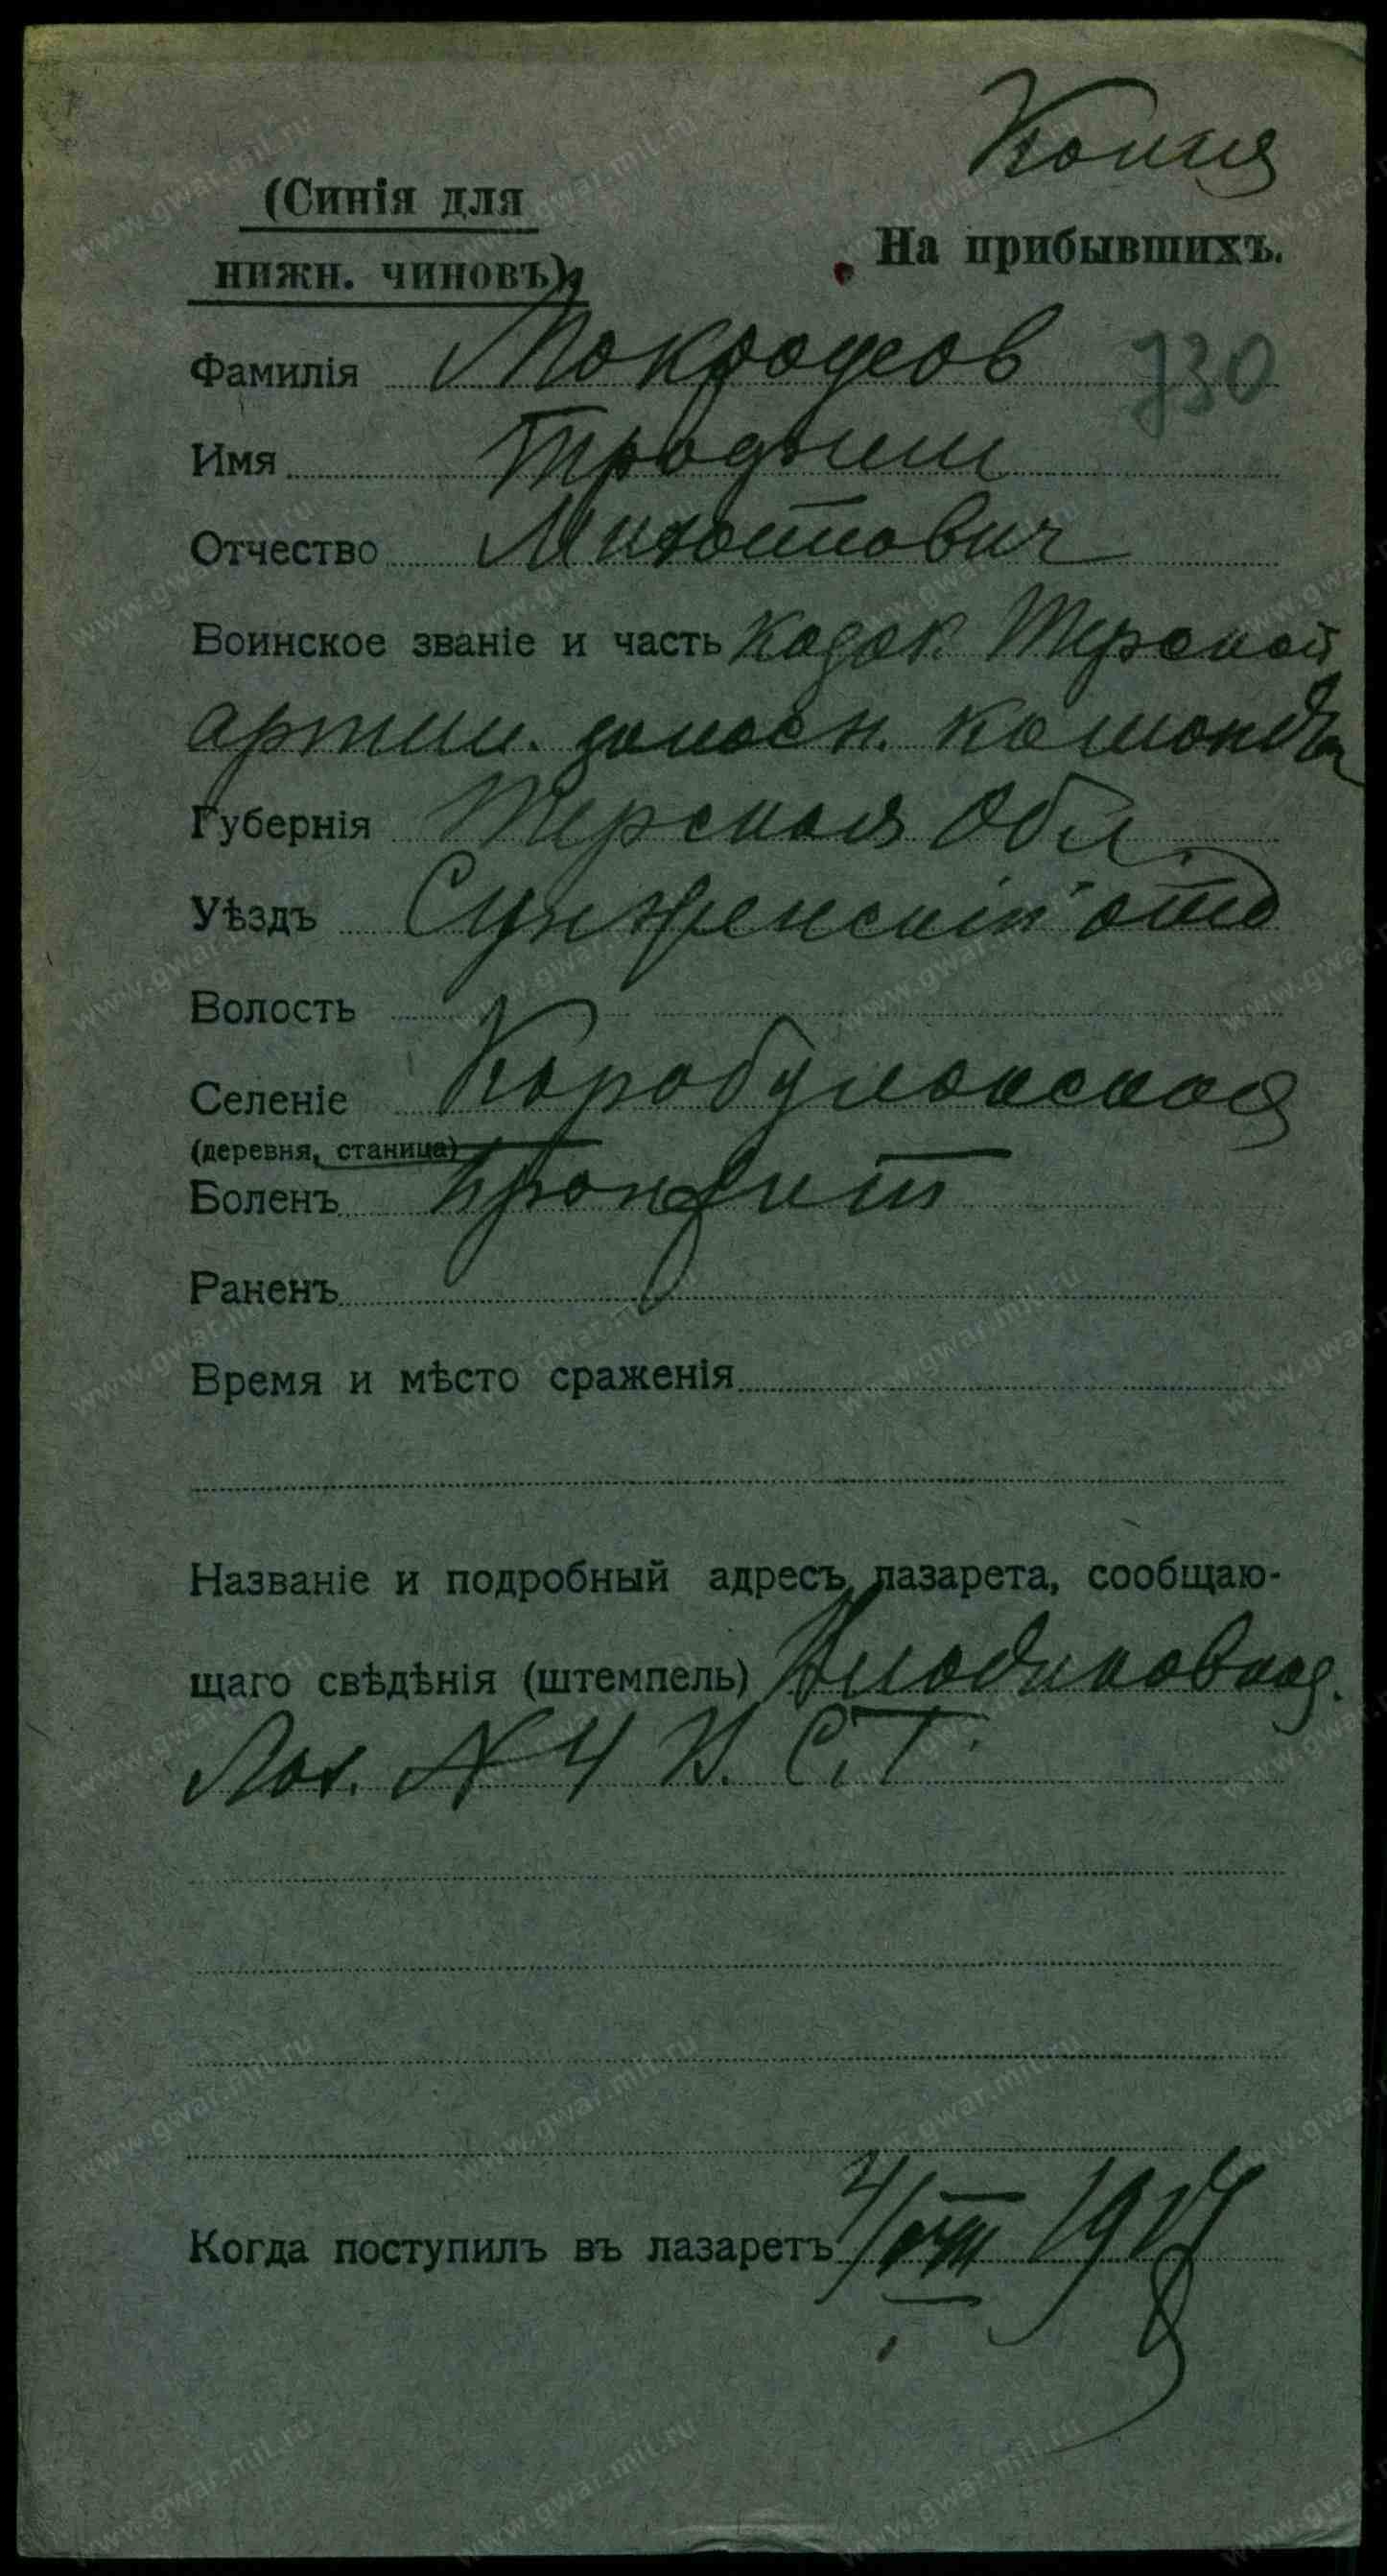 Копия
(Синія для
нижн. чиновъ)
На прибывшихъ.
Фамилія Мокроусов 730
Имя
Отчество
Воинское званіе и часть Казак Терской
артил. команды
Губернія Терская Обл.
Уѣздъ Сунженскій отд
Волость
Селеніе Карабулакская
(деревня, станица)
Боленъ Бронхит
Раненъ
Время и мѣсто сраженія
Названіе и подробный адресъ лазарета, сообщаю-
щаго свѣдѣнія (штемпель) Владикавказ.
Лаз. № 4 В. С. Г.
Когда поступилъ въ лазаретъ 4/VIII 1917